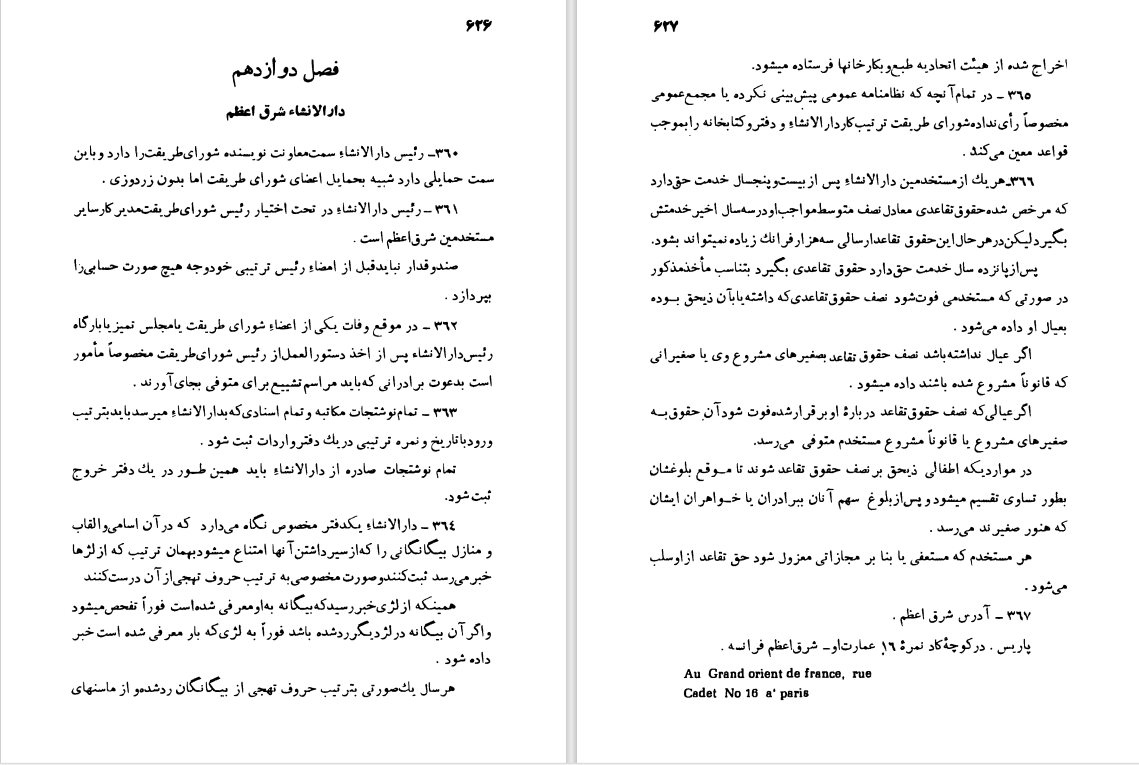 ۶۲۶
فصل دوازدهم
دارالانشاء شرق اعظم
۳۶۰ـ رئیس دارالانشاءِ سمت معاونت نویسنده شورای طریقت را دارد و باین
سمت حمایلی دارد شبیه بحمایل اعضای شورای طریقت اما بدون زردوزی .
۳۶۱ ـ رئیس دارالانشاءِ در تحت اختیار رئیس شورای طریقت مدیر کار سایر
مستخدمین شرق اعظم است .
صندوقدار نباید قبل از امضاءِ رئیس ترتیبی خودوجه هیچ صورت حسابی را
بپردازد .
۳۶۲ ـ در موقع وفات یکی از اعضاءِ شورای طریقت یا مجلس تمیز یا بارگاه
رئیس دارالانشاء پس از اخذ دستورالعمل از رئیس شورای طریقت مخصوصاً مأمور
است بدعوت برادرانی که باید مراسم تشییع برای متوفی بجای آورند .
۳۶۳ ـ تمام نوشتجات مکاتبه و تمام اسنادی که بدارالانشاءِ میرسد باید بترتیب
ورود با تاریخ و نمره ترتیبی در یك دفتر واردات ثبت شود .
تمام نوشتجات صادره از دارالانشاءِ باید همین طـور در یك دفتر خروج
ثبت شود.
۳٦٤ ـ دارالانشاءِ یکدفتر مخصوص نگاه می‌دارد که در آن اسامی و القاب
و منازل بیگانگانی را که از سیر داشتن آنها امتناع میشود بهمان ترتیب که از لژها
خبر می‌رسد ثبت کنند و صورت مخصوصی به ترتیب حروف تهجی از آن درست کنند
همینکه از لژی خبر رسید که بیگانه به او معرفی شده است فوراً تفحص میشود
و اگر آن بیگانه در لژ دیگر رد شده باشد فوراً به لژی که بار معرفی شده است خبر
داده شود .
هرسال یك صورتی بترتیب حروف تهجی از بیگانگان رد شده و از ماسنهای
۶۲۷
اخراج شده از هیئت اتحادیه طبع و بکارخانها فرستاده میشود.
۳٦٥ ـ در تمام آنچه که نظامنامه عمومی پیش‌بینی نکرده یا مجمع عمومی
مخصوصاً رأی نداده شورای طریقت ترتیب کار دارالانشاءِ و دفتر و کتابخانه را بموجب
قواعد معین می‌کند .
۳٦٦ـ هریك از مستخدمین دارالانشاءِ پس از بیست و پنجسال خدمت حق دارد
که مرخص شده حقوق تقاعدی معادل نصف متوسط مواجب او در سه سال اخیر خدمتش
بگیرد لیکن در هر حال این حقوق تقاعد ار سالی سه هزار فرانك زیاده نمیتواند بشود.
پس از پانزده سال خدمت حق دارد حقوق تقاعدی بگیرد بتناسب مأخذ مذکور
در صورتی که مستخدمی فوت شود نصف حقوق تقاعدی که داشته یا بآن ذیحق بـوده
بعیال او داده می‌شود .
اگر عیال نداشته باشد نصف حقوق تقاعد بصغیرهای مشروع وی یا صغیرانی
که قانوناً مشروع شده باشند داده میشود .
اگر عیالی که نصف حقوق تقاعد دربارهٔ او برقرار شده فوت شود آن حقوق بـه
صغیرهای مشروع یا قانوناً مشروع مستخدم متوفی می‌رسد.
در مواردیکه اطفالی ذیحق بر نصف حقوق تقاعد شوند تا مـوقع بلوغشان
بطور تساوی تقسیم میشود و پس از بلوغ سهم آنان ببرادران یا خـواهران ایشان
که هنور صغیرند می‌رسد .
هر مستخدم که مستعفی یا بنا بر مجازاتی معزول شود حق تقاعد از او سلب
می‌شود .
۳٦۷ ـ آدرس شرق اعظم .
پاریس . در کوچهٔ کاد نمرهٔ ۱٦ عمارت او ـ شرق اعظم فرانسه .
Au Grand orient de france, rue
Cadet No 16 a‘ paris